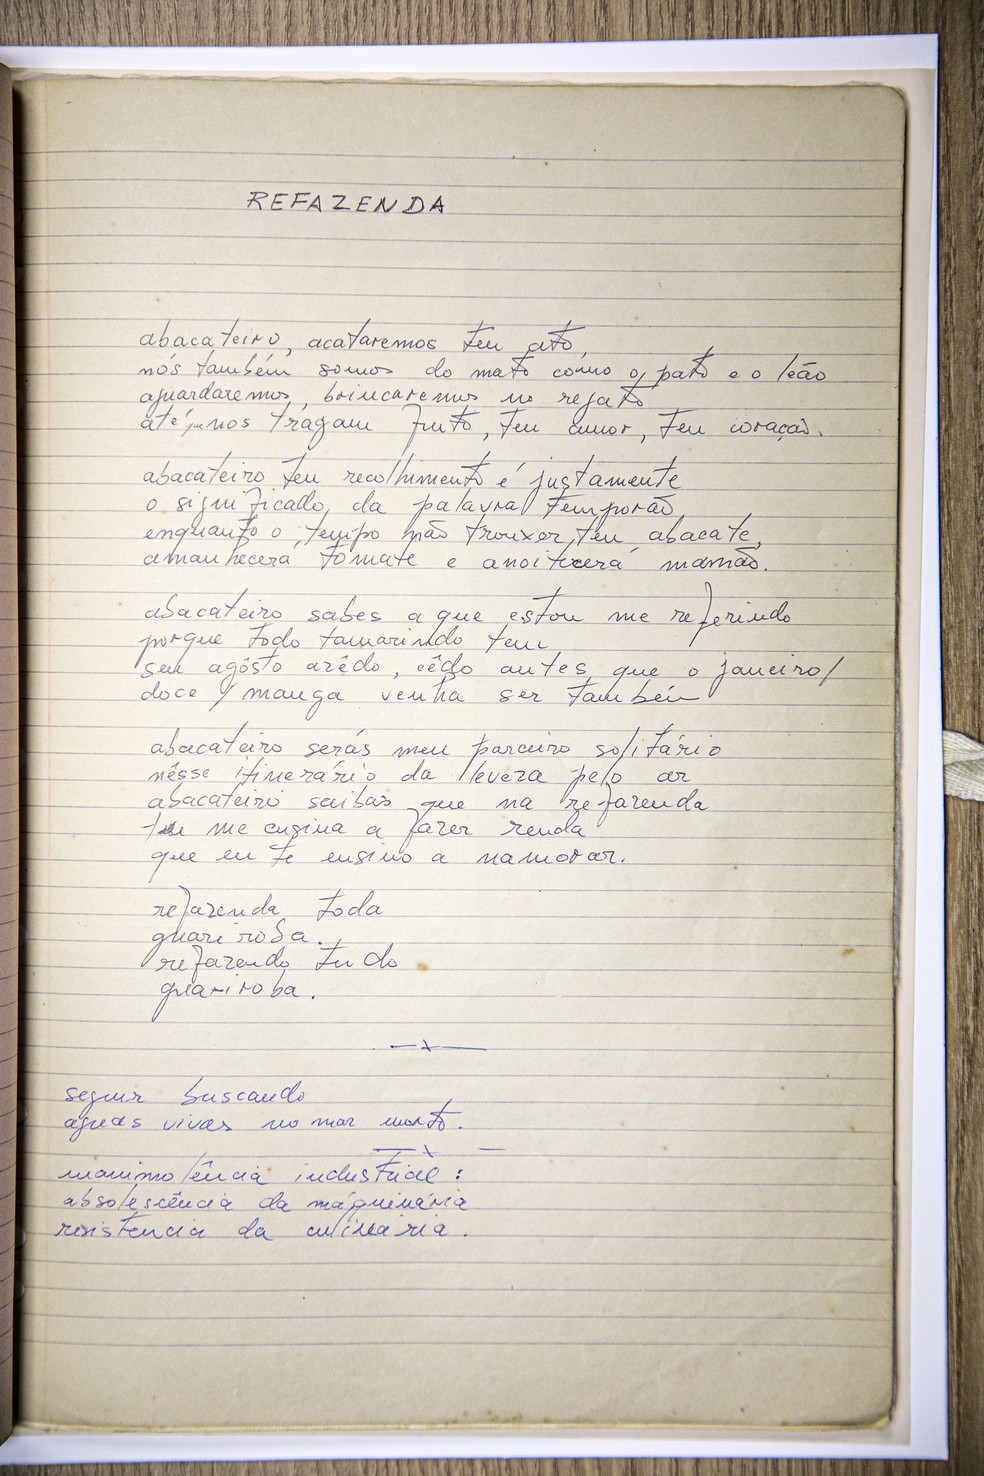 REFAZENDA
abacateiro, acataremos teu ato,
nós também somos do mato como o pato e o leão
aguardaremos, brincaremos no regato
até que nos tragam fruto, teu amor, teu coração.
abacateiro teu recolhimento é justamente
o significado da palavra temporão
enquanto o tempo não trouxer teu abacate,
amanhecerá tomate e anoitecerá mamão.
abacateiro sabes a que estou me referindo
porque todo tamarindo tem
seu agôsto azêdo, cêdo antes que o janeiro/
doce / manga venha ser também
abacateiro serás meu parceiro solitário
nêsse itinerário da leveza pelo ar
abacateiro saibas que na refazenda
tu me ensina a fazer renda
que eu te ensino a namorar.
refazenda toda
guariroba.
refazendo tudo
guariroba.
seguir buscando
águas vivas no mar morto.
industrial:
absolescência da máquinária
resistência da culinária.